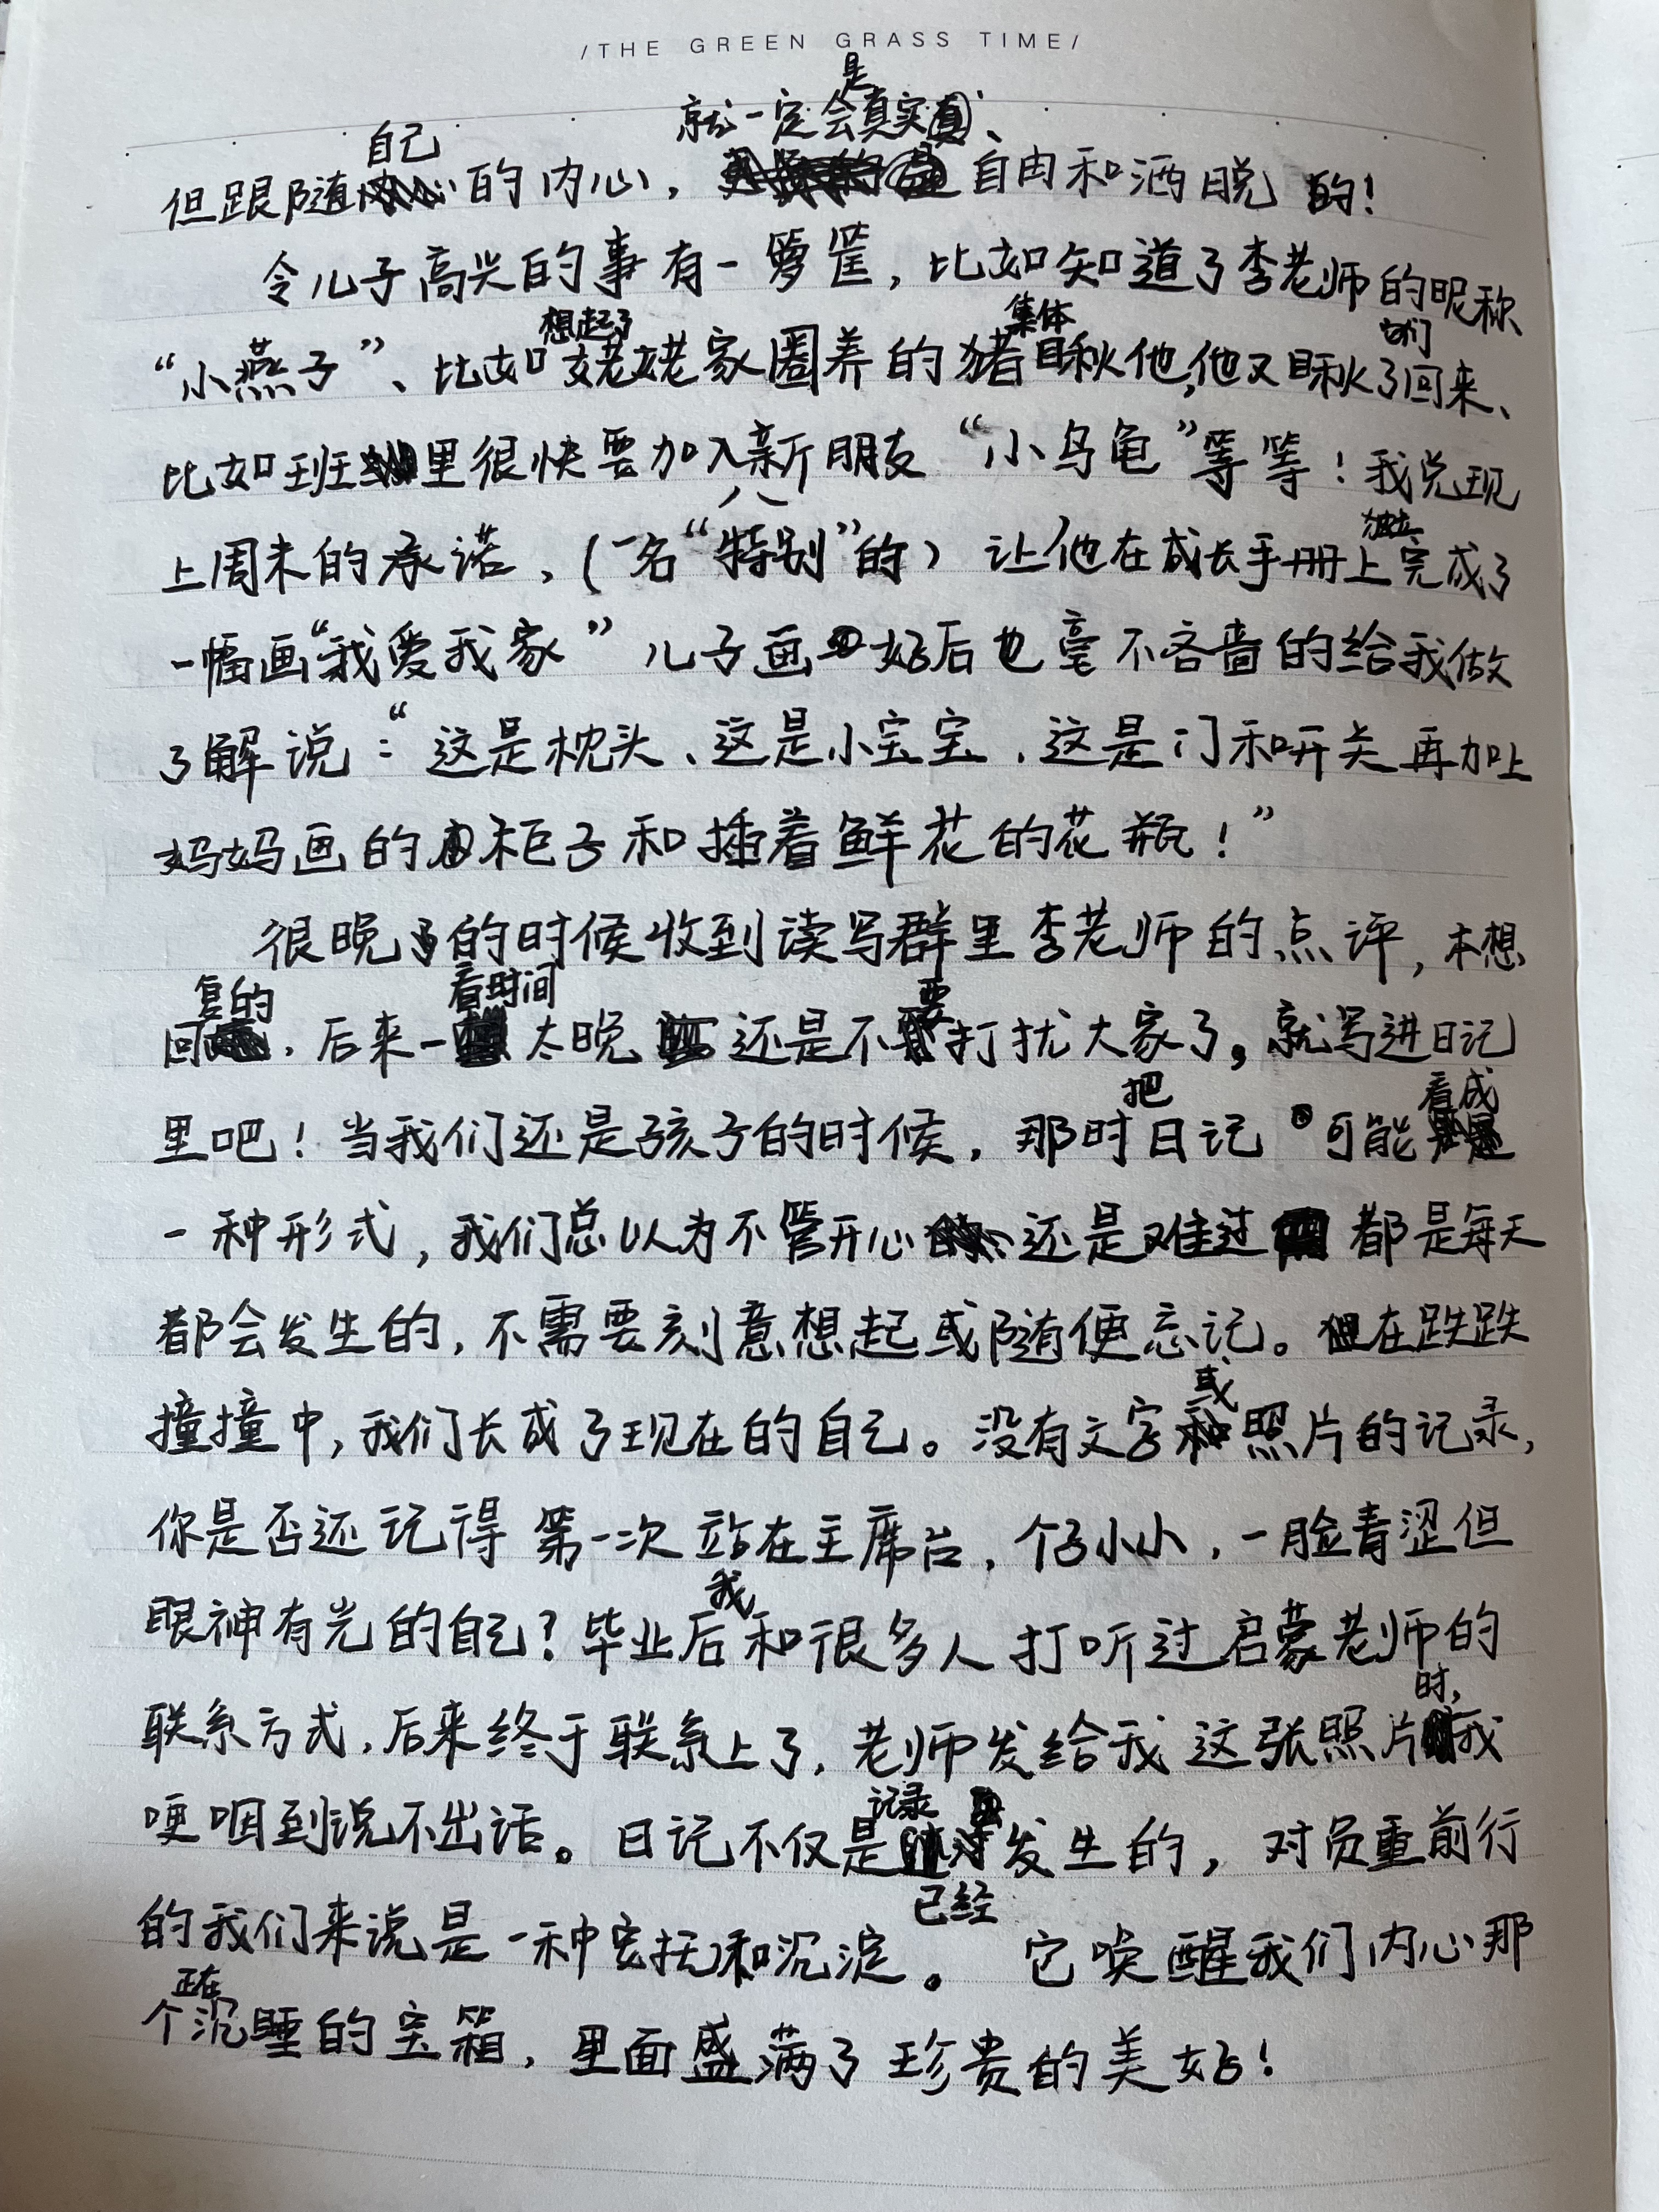 /THE GREEN GRASS TIME/
但跟随自己的内心，就一定会是真实、自由和洒脱的！
令儿子高兴的事有一箩筐，比如知道了李老师的昵称
“小燕子”、比如想起了姥姥家圈养的猪集体瞅他，他又瞅了它们回来、
比如班里很快要加入新朋友“小乌龟”等等！我兑现
上周末的承诺，（一名“特别”的）让他在成长手册上独立完成了
一幅画“我爱我家”儿子画好后也毫不吝啬的给我做
了解说：“这是枕头、这是小宝宝，这是门和开关再加上
妈妈画的柜子和插着鲜花的花瓶！”
很晚的时候收到读写群里李老师的点评，本想
回复的，后来一看时间太晚还是不要打扰大家了，就写进日记
里吧！当我们还是孩子的时候，那时把日记可能看成
一种形式，我们总以为不管开心还是难过都是每天
都会发生的，不需要刻意想起或随便忘记。但在跌跌
撞撞中，我们长成了现在的自己。没有文字或照片的记录，
你是否还记得第一次站在主席台，个子小小，一脸青涩但
眼神有光的自己？毕业后我和很多人打听过启蒙老师的
联系方式，后来终于联系上了，老师发给我这张照片时，我
哽咽到说不出话。日记不仅是记录已经发生的，对负重前行
的我们来说是一种安抚和沉淀。它唤醒我们内心那
个正在沉睡的宝箱，里面盛满了珍贵的美好！